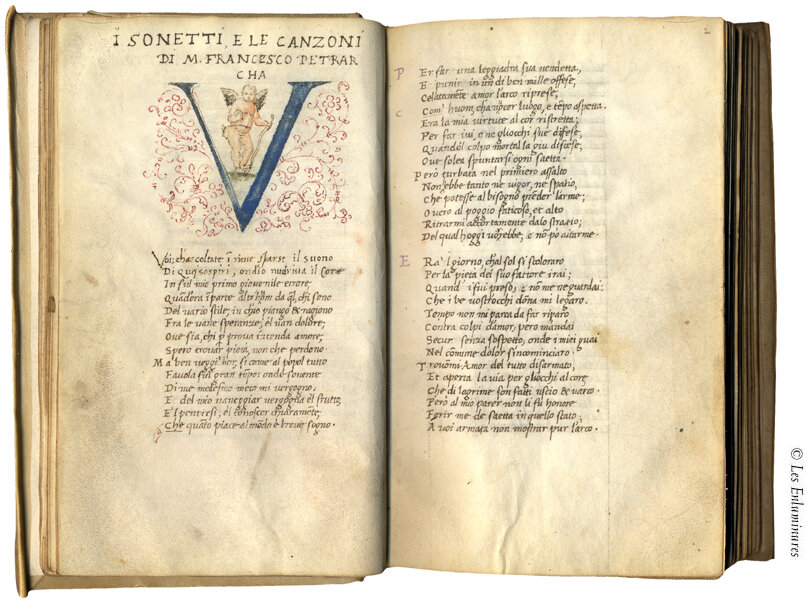 I SONETTI, E LE CANZONI
DI M. FRANCESCO PETRAR
CHA
V
Voi; ch'ascoltate ĩ rime sparse il suono
Di que sospiri, ond'io nudriua il core
In sul mio primo giouenile errore;
Quãd'era ĩ parte altr'hom da ql, ch'i sono
Del vario stile; in ch'io piango & ragiono
Fra le vane speranze; e'l uan dolore;
Oue sia, chi p proua ĩtenda amore;
Spero trouar pieta, non che perdono.
Ma ben veggi'hor, si come al popol tutto
Fauola fui gran tẽpo: onde souente
Di me medesmo meco mi vergogno;
E del mio vaneggiar vergogna è'l frutto,
E'l pentirsi; e'l conoscer chiaramẽte;
Che quãto piace al mõdo è breue sogno.
2
PEr far una leggiadra sua uendetta,
E punir in un di ben mille offese,
Celatamẽte amor l'arco riprese;
Com' huom, ch'a nocer luogo, e tẽpo aspetta.
Era la mia virtute al cor ristretta;
Per far iui, e ne gliocchi sue difese,
Quando'l colpo mortal la giu discese,
Oue solea spuntarsi ogni saetta.
Pero turbata nel primiero assalto
Non hebbe tanto ne uigor, ne spatio,
Che potesse al bisogno prẽder l'arme;
O uero al poggio faticoso, et alto
Ritrarmi accortamente da lo stratio;
Del qual hoggi uorrebbe, e nõ po aitarme.
ERa'l giorno, ch'al sol si scoloraro
Per la pieta del suo fattore i rai;
Quand' i fui preso, e nõ me ne guardai:
Che i be vostr'occhi dõna mi legaro.
Tempo non mi parea da far riparo
Contra colpi d'amor, pero mandai
Secur senza sospetto, onde i miei guai
Nel cõmune dolor s'incominciaro.
Trouõmi Amor del tutto disarmato,
Et aperta la via per gliocchi al core,
Che di lagrime son fatti uscio & varco.
Pero al mio parer non li fu honore
Ferir me de saetta in quello stato;
A voi armata non mostrar pur l'arco.
© Les Enluminures